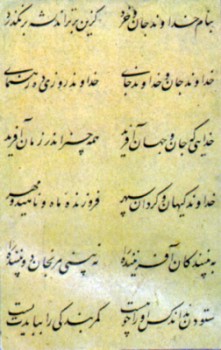 بنام خداوند جان و خرد کزین برتر اندیشه برنگذرد
خداوند جان و خداوند جای خداوند روزی ده رهنمای
خدایی که جان و جهان آفرید همه چیز اندر زمان آفرید
خداوند کیهان و گردان سپهر فروزنده ماه و ناهید و مهر
به بینندگان آفریننده را نه بینی مرنجان دو بیننده را
ستودن نداند کس او را چو هست کمر بندگی را ببایدت بست